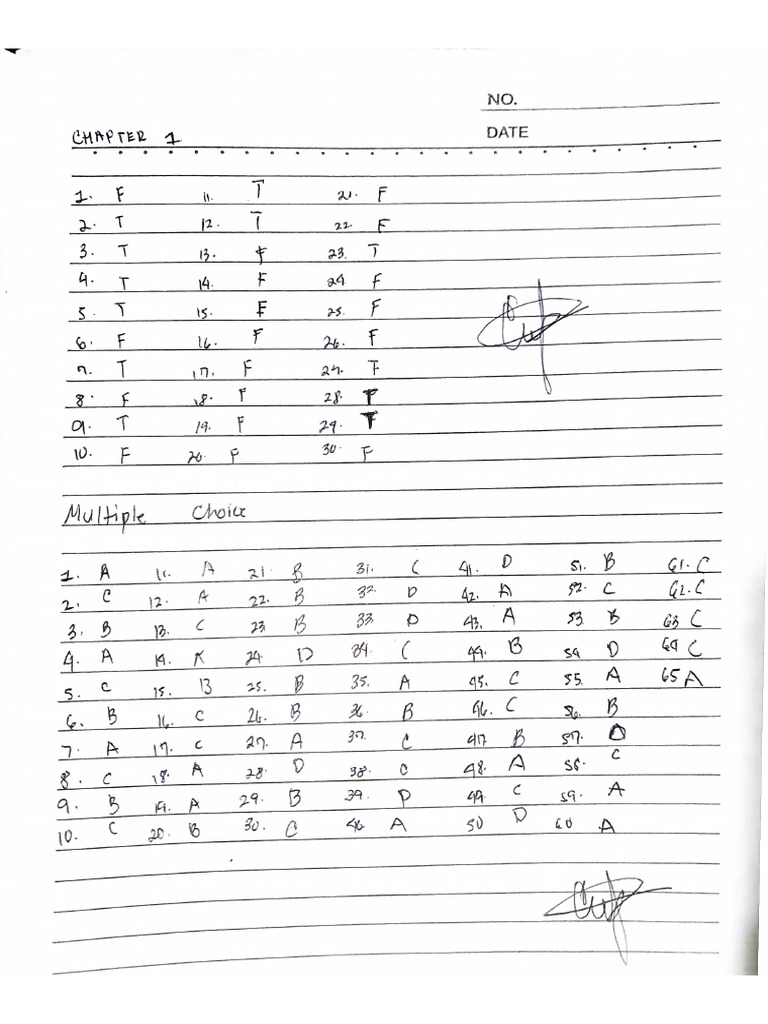 NO.
CHAPTER 1 DATE
1. F 11. T 21. F
2. T 12. T 22. F
3. T 13. F 23. T
4. T 14. F 24 F
5. T 15. F 25. F
6. F 16. F 26. F
7. T 17. F 27. T
8. F 18. F 28.
9. T 19. F 29.
10. F 20. F 30. F
Multiple Choice
1. A 11. A 21. B 31. C 41. D 51. B 61. C
2. C 12. A 22. B 32 D 42. A 52. C 62. C
3. B 13. C 23 B 33 D 43. A 53 B 63 C
4. A 14. 24 D 34. C 44. B 54 D 64 C
5. C 15. B 25. B 35. A 45. C 55. A 65 A
6. B 16. C 26. B 36. B 46. C 56. B
7. A 17. C 27. A 37. C 47 B 57.
8. C 18. A 28 D 38. C 48. A 58. C
9. B 19. A 29. B 39. D 49. C 59. A
10. C 20. B 30. C 40 A 50 D 60 A